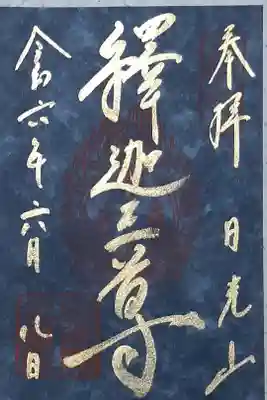 奉拝 日光山
釋迦三尊
令和六年六月八日